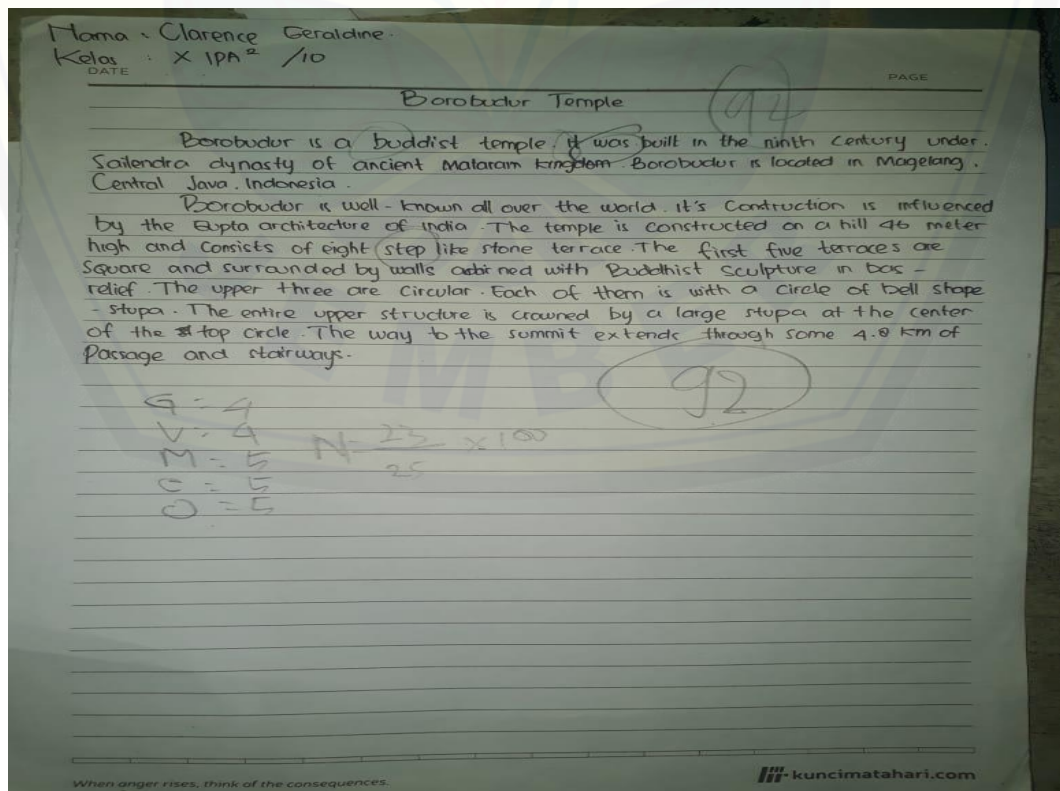 Nama : Clarence Geraldine.
Kelas : X IPA² /10
DATE
PAGE
Borobudur Temple
94
Borobudur is a buddist temple. It was built in the ninth century under.
Sailendra dynasty of ancient Mataram kingdom Borobudur is located in Magelang,
Central Java. Indonesia.
Borobudur is well-known all over the world. It's Contruction is influenced
by the Gupta architecture of India. The temple is constructed on a hill 46 meter
high and consists of eight step like stone terrace. The first five terraces are
Square and surrounded by walls with Buddhist Sculpture in bas-
relief. The upper three are Circular. Each of them is with a Circle of bell shape
- Stupa. The entire upper structure is crowned by a large stupa at the center
of the top circle. The way to the summit extends through some 4.8 Km of
Passage and stairways.
92
G = 4
V = 4
M = 5
C = 5
O = 5
N = 23/25 x 100
When anger rises, think of the consequences.
kuncimatahari.com